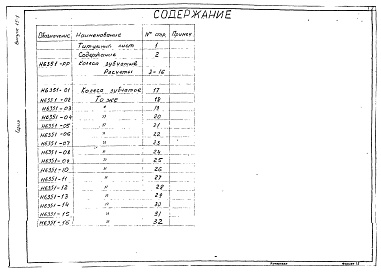 СОДЕРЖАНИЕ
Обозначение Наименование № стр. Примеч
Титульный лист 1
Содержание 2
Н6351-РР Колеса зубчатые
Расчеты 3-16
Н6351-01 Колеса зубчатое 17
Н6351-02 То же 18
Н6351-03 " 19
Н6351-04 " 20
Н6351-05 " 21
Н6351-06 " 22
Н6351-07 " 23
Н6351-08 " 24
Н6351-09 " 25
Н6351-10 " 26
Н6351-11 " 27
Н6351-12 " 28
Н6351-13 " 29
Н6351-14 " 30
Н6351-15 " 31
Н6351-16 " 32
Копировал Формат 12